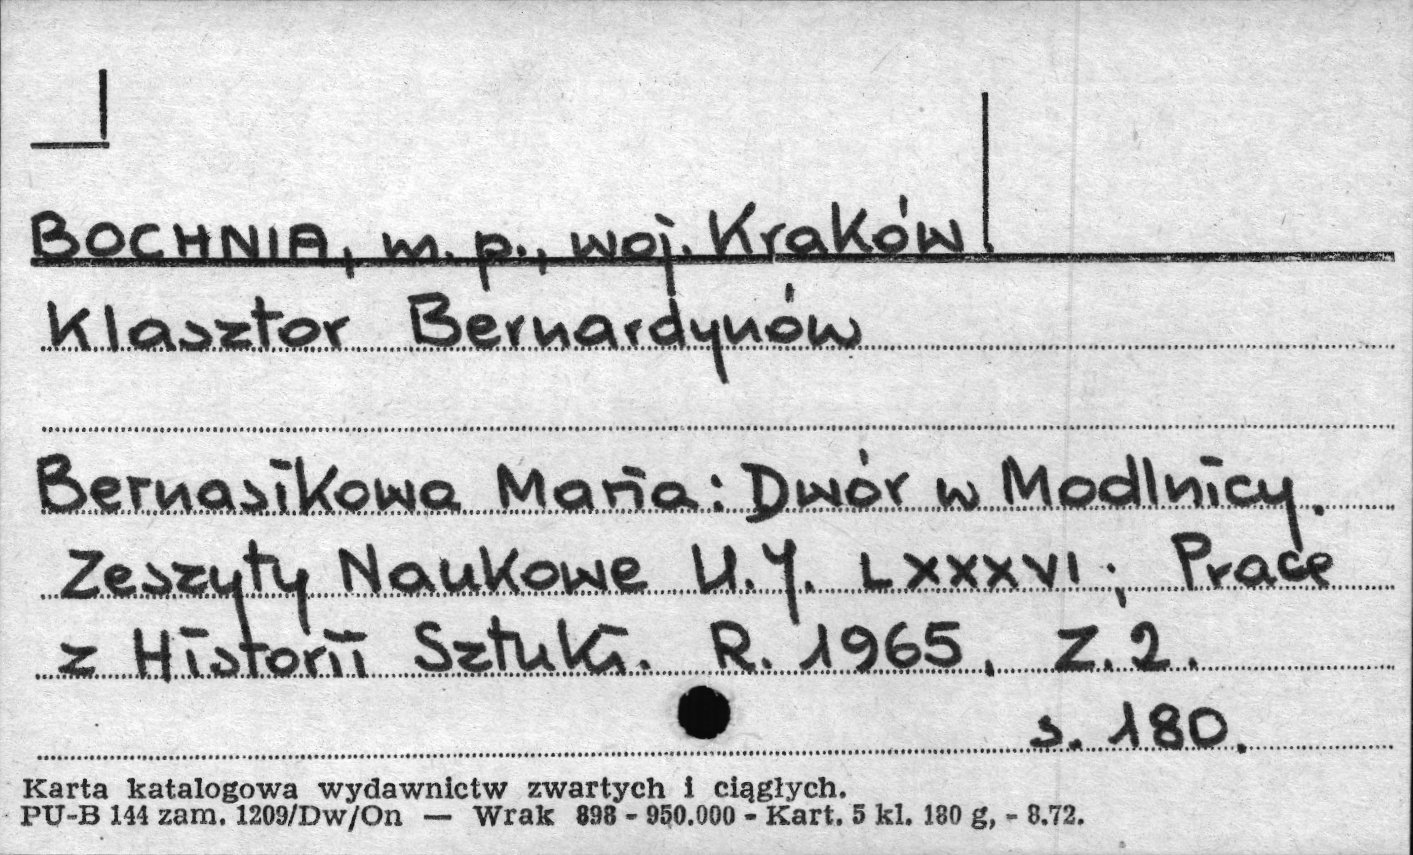 BOCHNIA, m. p., woj. Kraków.
Klasztor Bernardynów
Bernasikowa Maria: Dwór w Modlnicy.
Zeszyty Naukowe U.J. LXXXVI; Prace
z Historii Sztuki. R. 1965, Z. 2.
s. 180.
Karta katalogowa wydawnictw zwartych i ciągłych.
PU-B 144 zam. 1209/Dw/On — Wrak 898 - 950.000 - Kart. 5 kl. 180 g, - 8.72.